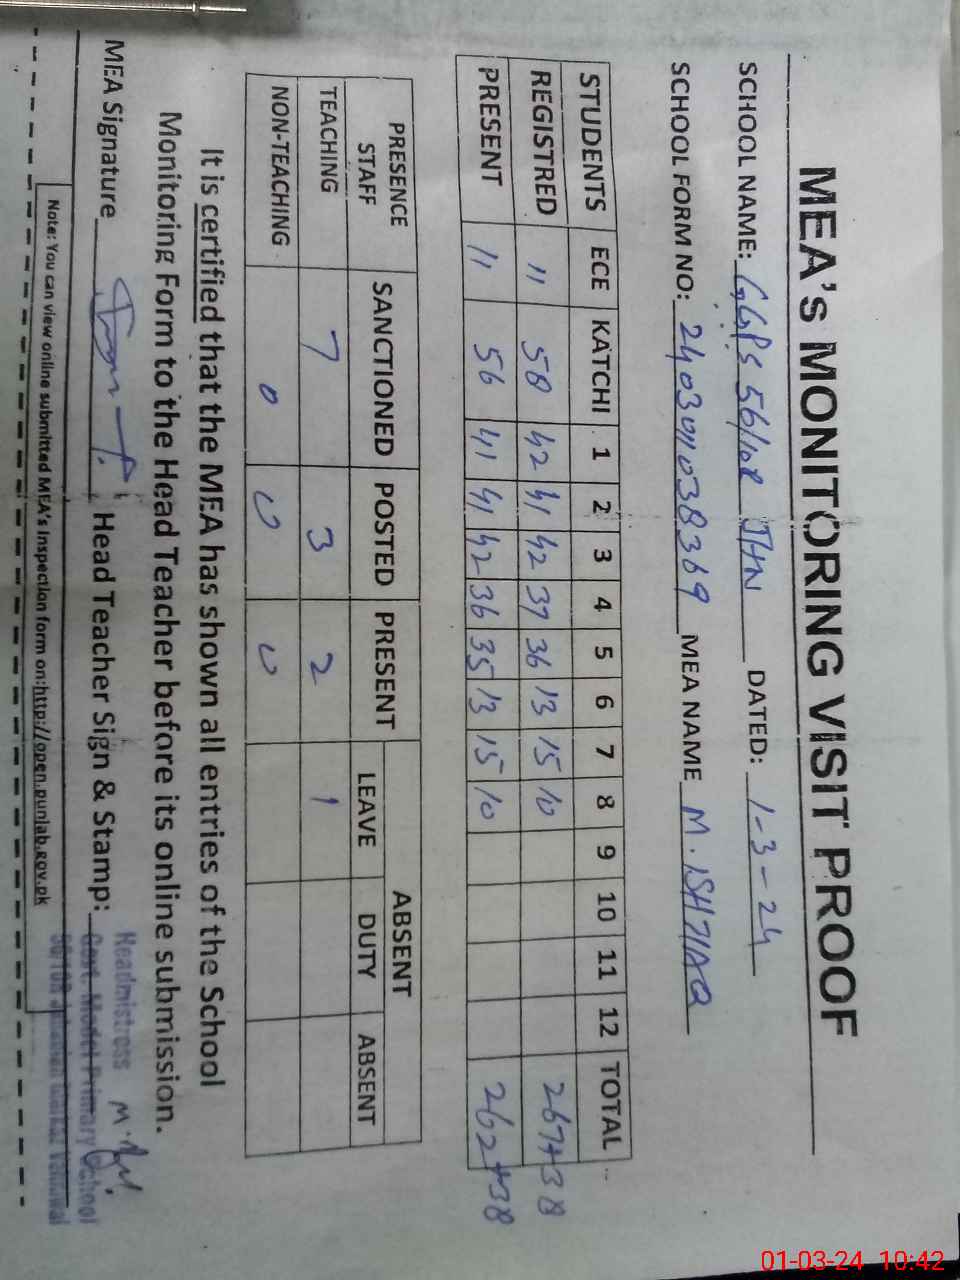 MEA's MONITORING VISIT PROOF
SCHOOL NAME: GGPS 56/10R JHN DATED: 1-3-24
SCHOOL FORM NO: 2403011038369 MEA NAME M. ISHTIAQ
STUDENTS ECE KATCHI 1 2 3 4 5 6 7 8 9 10 11 12 TOTAL
REGISTRED 11 58 42 41 42 37 36 13 15 10 267+38
PRESENT 11 56 41 41 42 36 35 13 15 10 262+38
PRESENCE STAFF SANCTIONED POSTED PRESENT ABSENT
LEAVE DUTY ABSENT
TEACHING 7 3 2 1
NON-TEACHING 0 0 0
It is certified that the MEA has shown all entries of the School
Monitoring Form to the Head Teacher before its online submission.
MEA Signature Head Teacher Sign & Stamp: Headmistress
Govt. Model Primary School
Note: You can view online submitted MEA's Inspection form on:http://open.punjab.gov.pk
01-03-24 10:42